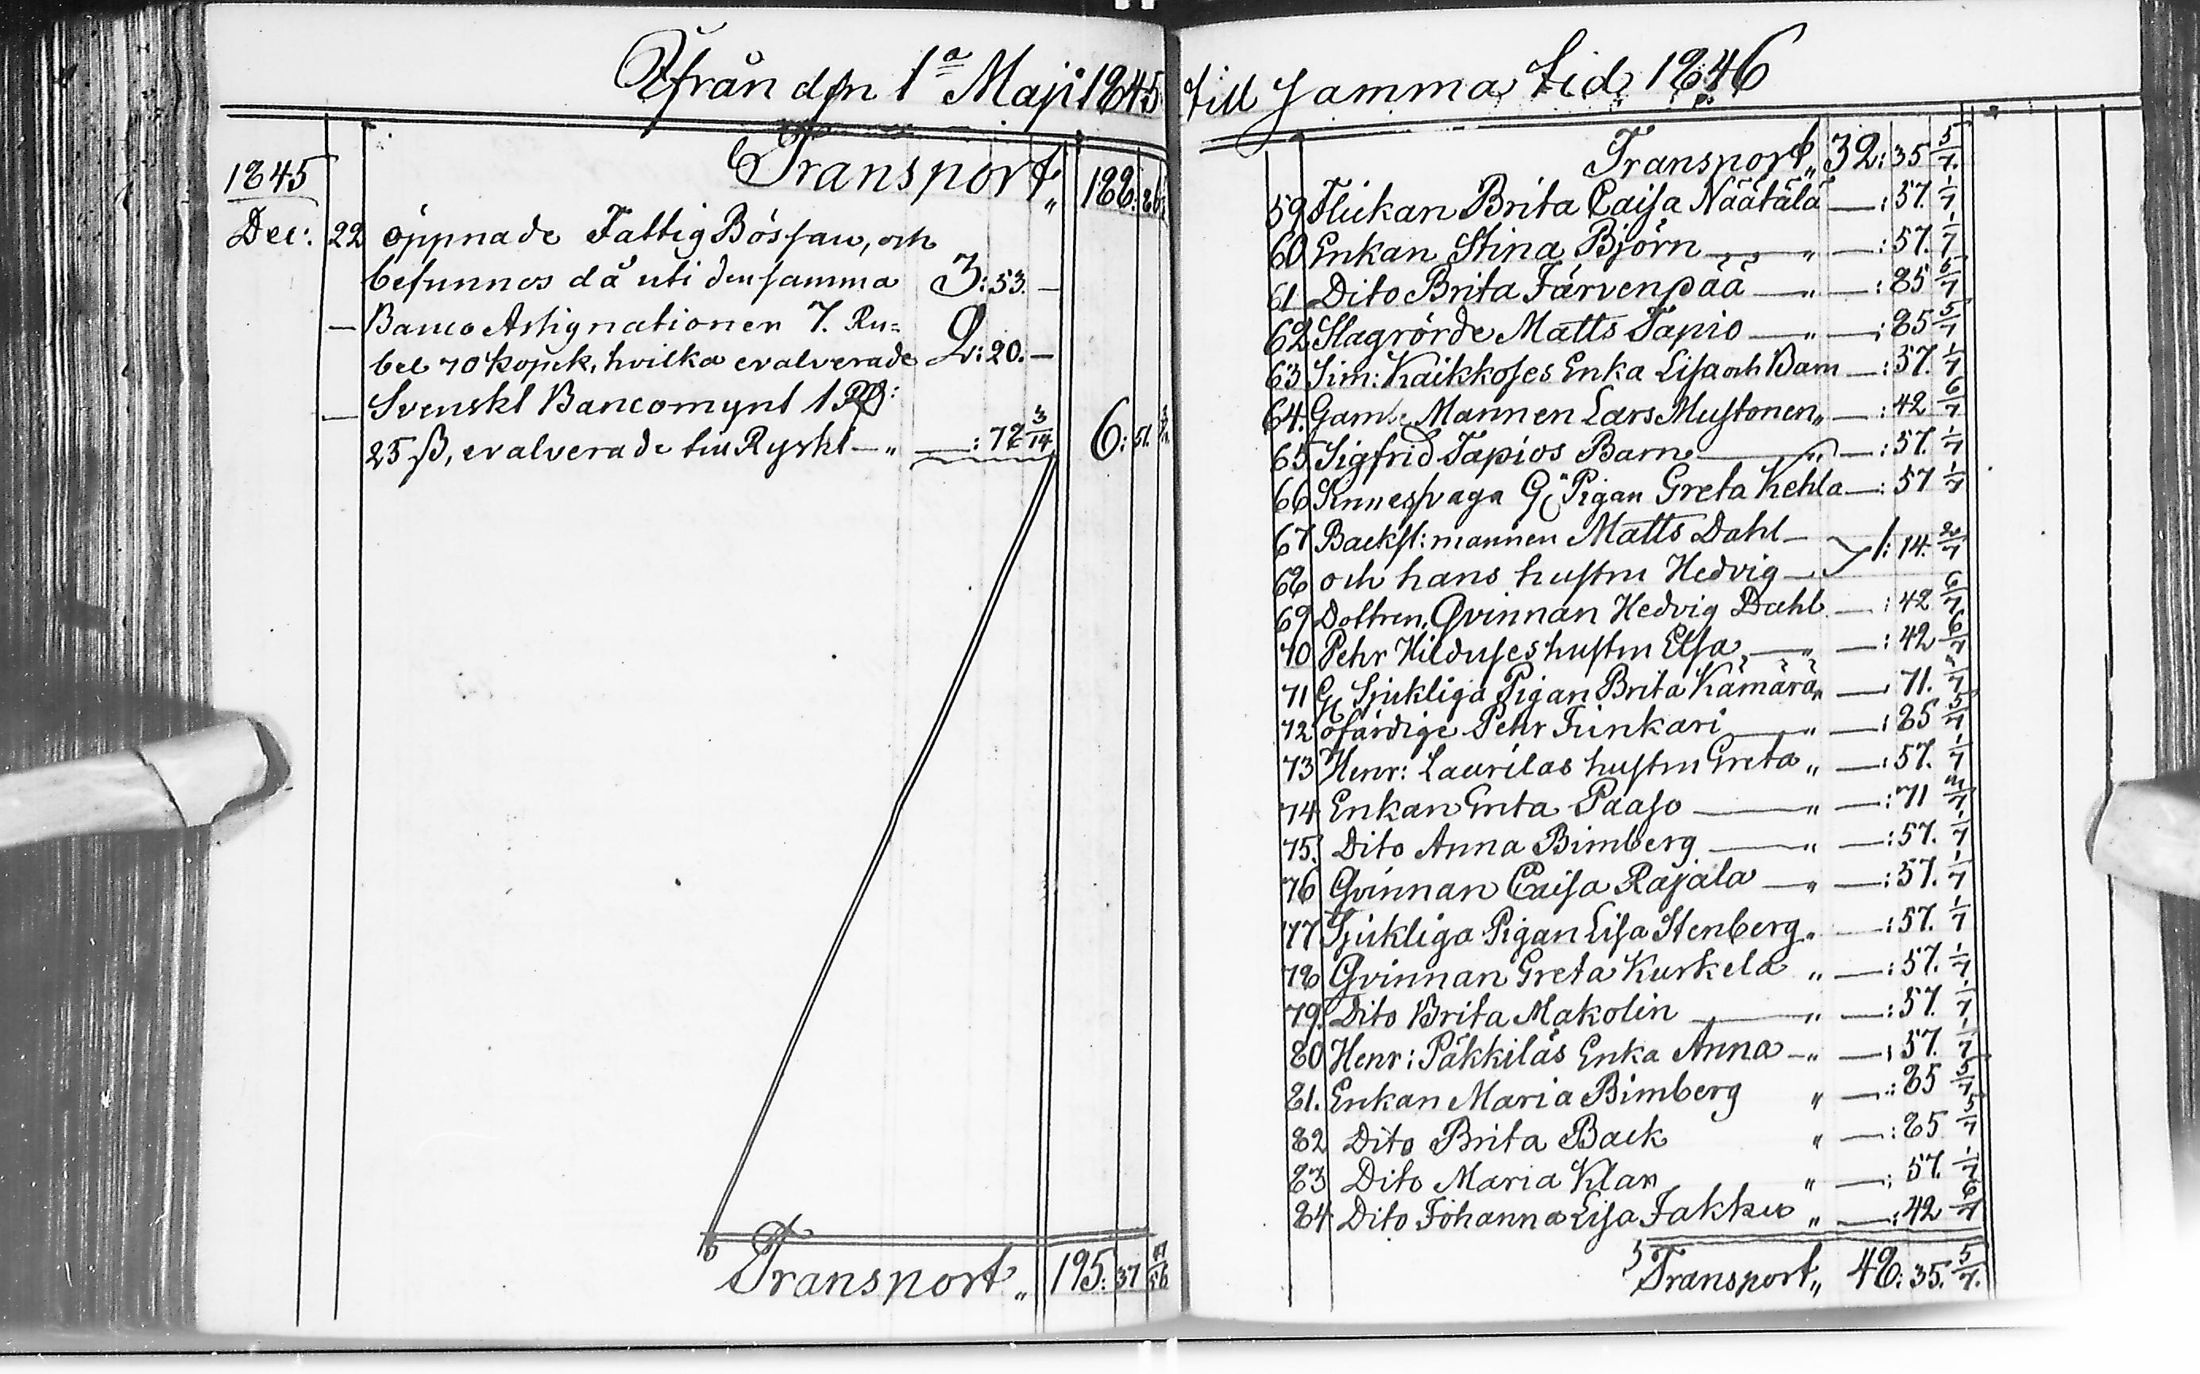 Ifrån den 1a Maji 1845
Transport „ 188: 86
1845
Dec: 22 öppnade FattigBössan, och
befunnos då uti densamma 3: 53. —
— Banco Assignationer 7. Ru=
bel 70 kopek, hvilka evalverade 2: 20. —
— Svenskt Bancomynt 1 RD:
25 ß, evalverade till Ryskt — „ —: 78 3/14 6: 51.
Transport „ 195: 37
till samma tid 1846
Transport „ 32: 35 5/7.
59 Flickan Brita Caisa Näätälä —: 57. 1/7
60 Enkan Stina Björn — „ —: 57. 1/7
61 Dito Brita Järvenpää — „ —: 85 5/7
62 Slagrörde Matts Tapio — „ —: 85 5/7
63 Sim: Kaikkoses Enka Lisa och Barn —: 57. 1/7
64. Gamle Mannen Lars Mustonen „ —: 42 6/7
65 Sigfrid Tapios Barn — „ —: 57. 1/7
66 Sinnessvaga Pigan Greta Kehla —: 57 1/7
67 Backst: mannen Matts Dahl —
68 och hans hustru Hedvig — 1: 14. 2/7
69 Dottren, Qvinnan Hedvig Dahl — : 42 6/7
70 Pehr Hilduses hustru Elsa — „ —: 42 6/7
71 Sjukliga Pigan Brita Kämärä „ — 71. 3/7
72 ofärdige Pehr Junkari — „ —: 85 5/7
73 Henr: Laurilas hustru Greta „ —: 57. 1/7
74 Enkan Greta Paaso — „ —: 71 3/7
75. Dito Anna Bimberg — „ —: 57. 1/7
76 Qvinnan Caisa Rajala — „ —: 57. 1/7
77 Sjukliga Pigan Lisa Stenberg „ —: 57. 1/7
78 Qvinnan Greta Kurkela „ —: 57. 1/7
79. Dito Brita Makolin — „ —: 57. 1/7
80 Henr: Päkkiläs Enka Anna — „ —: 57. 1/7
81. Enkan Maria Bimberg „ —: 85 5/7
82 Dito Brita Back „ —: 85 5/7
83 Dito Maria Klan „ —: 57. 1/7
84 Dito Johanna Lisa Jakku „ —: 42 6/7
Transport „ 48: 35. 5/7.